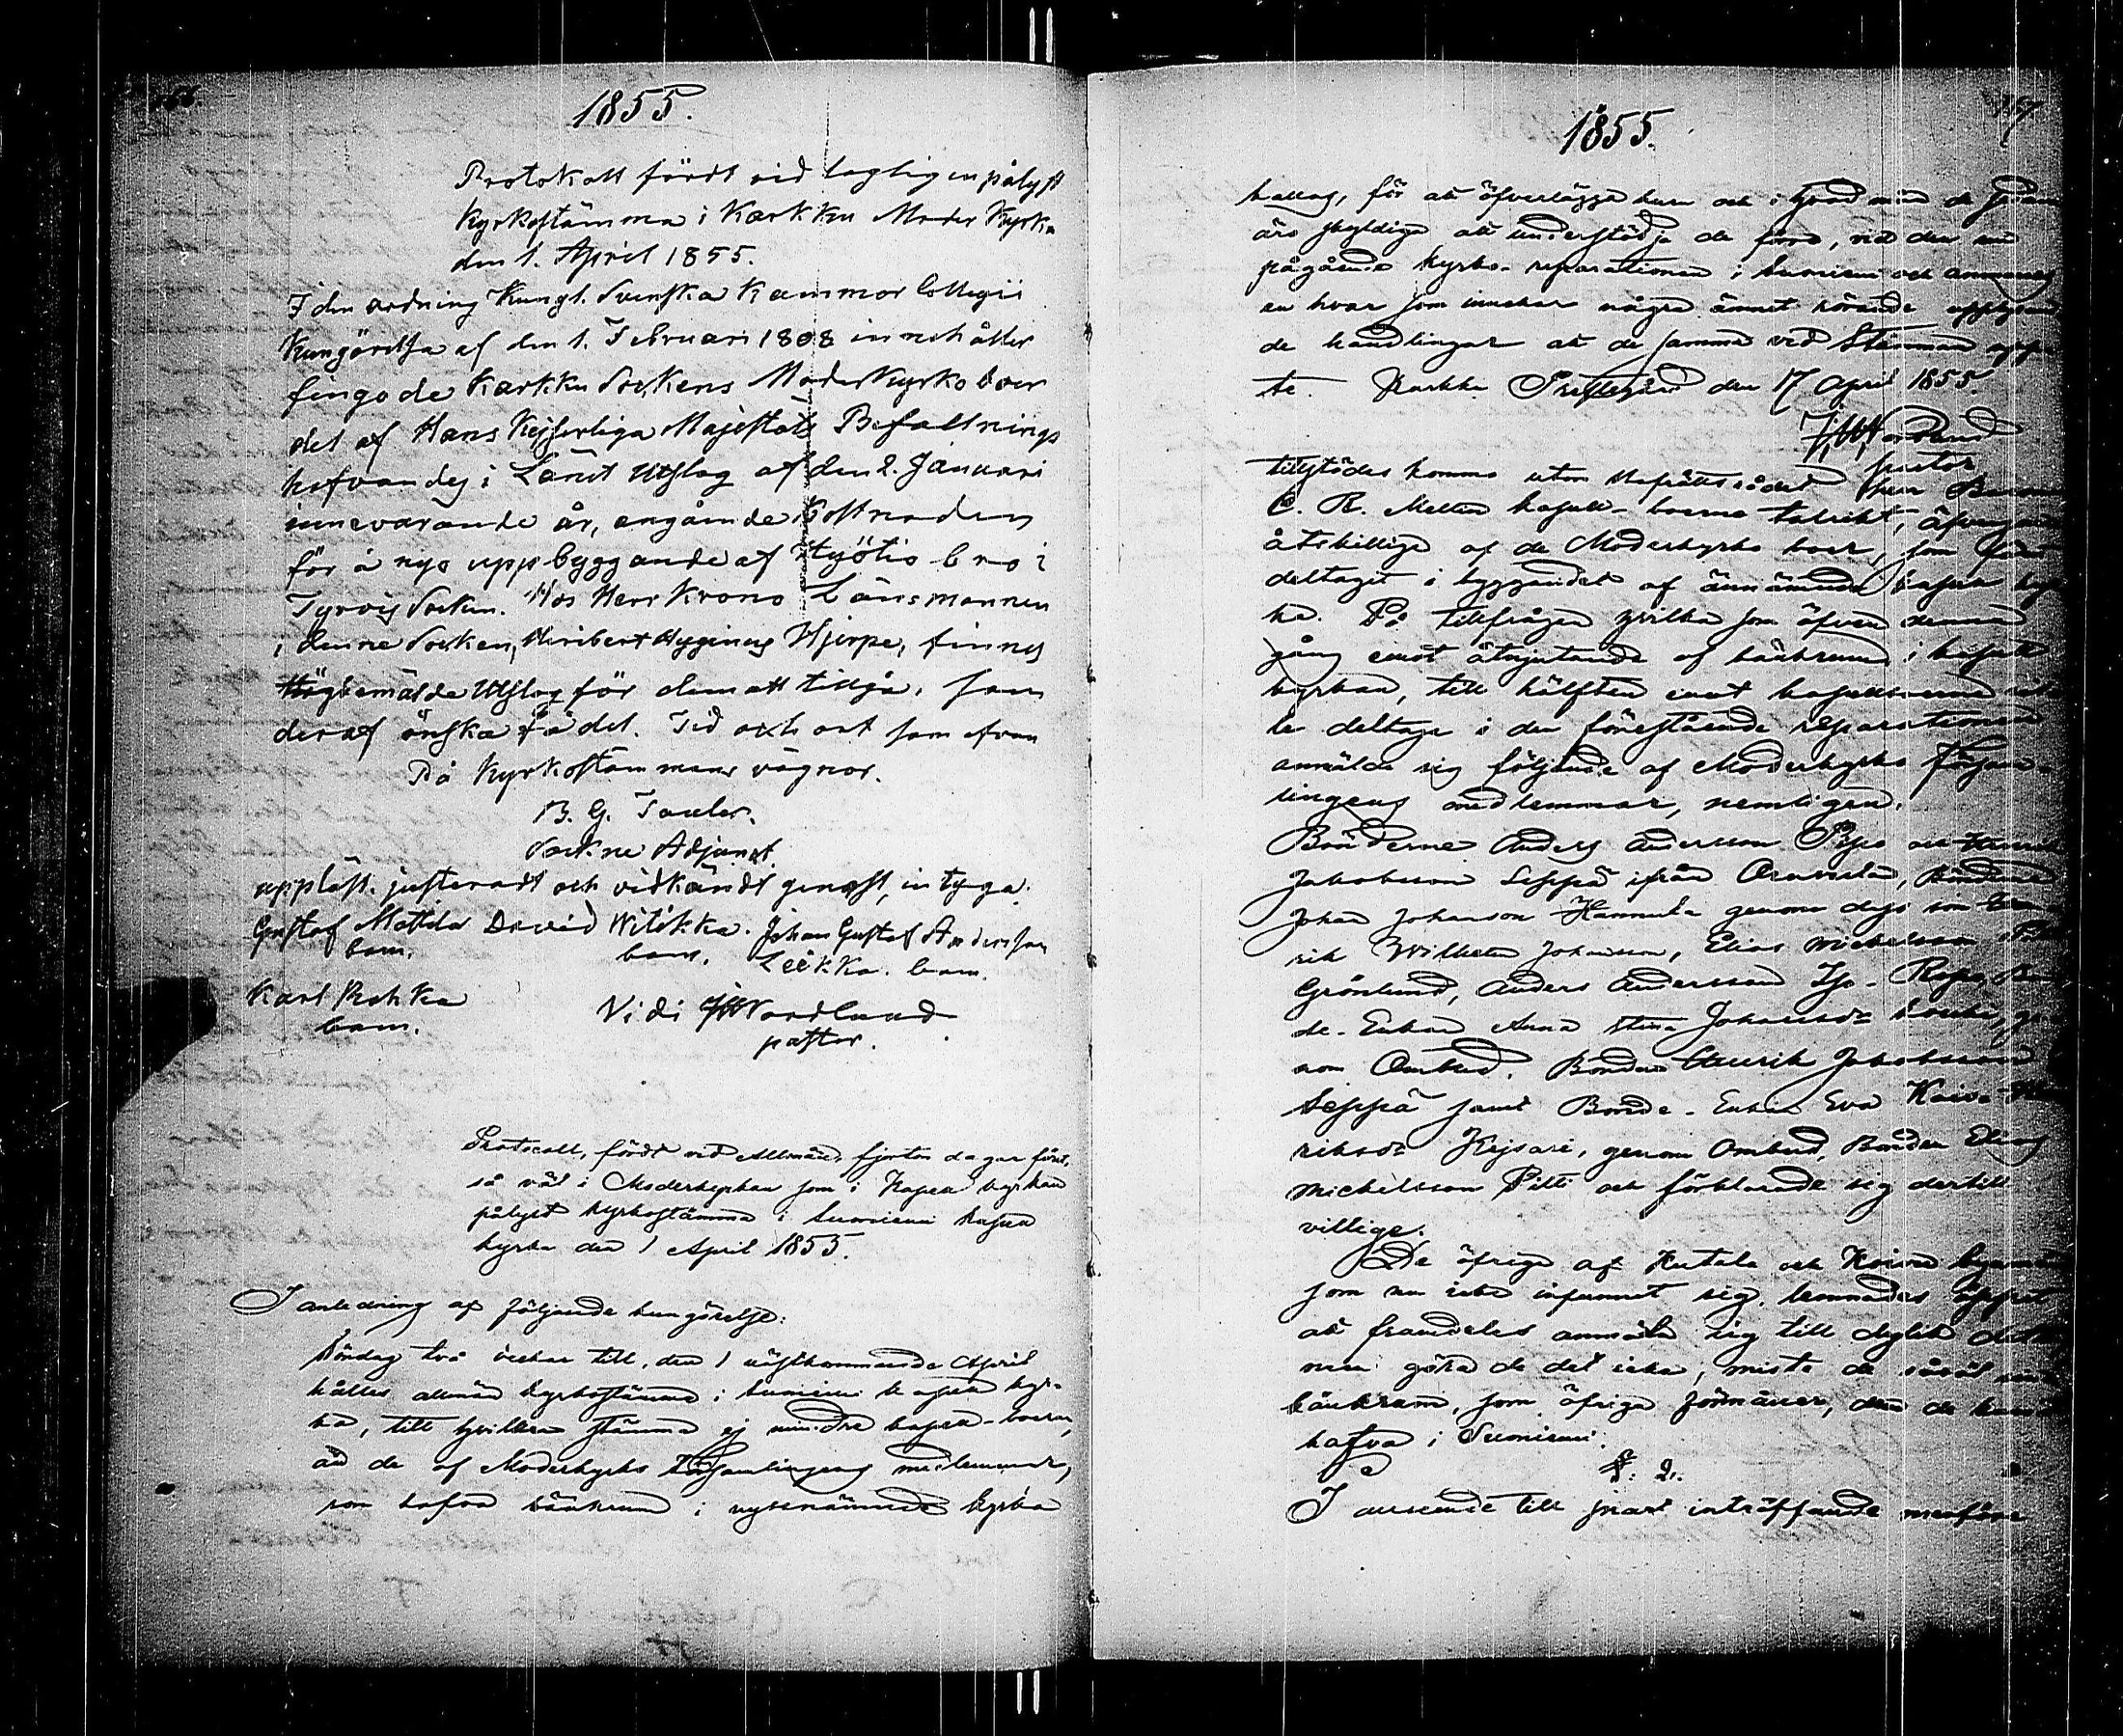 1855.
Protokoll fördt vid lagligen pålyst
Kyrkostämma i Karkku Moder Kyrka
den 1. April 1855.
I den ordning Kungl. Svenska Kammor Collegii
Kungörelse af den 1. Februari 1808 innehåller
fingo de Karkku Sockens Moderkyrkoboer
del af Hans Kejserliga Majestäts Befallnings
hafvandes i Länet Utslag af den 2. Januari
innevarande år, angående kostnaden
för å nyo uppbyggande af bro i
Tyrvis Socken. Hos Herr Krono Länsmannen
i denne Socken, Heribert Hyginus Hjorpe, finnes
Högbemälde Utslag för dem att tillgå, som
deraf önska få del. Tid och ort som ofvan
På Kyrkostämmans vägnar.
B. G.
Sockne Adjunct.
uppläst, justeradt och vidkändt genast, intyga:
Gustaf Mattila David Witikka. Johan Gustaf Andersson
bom. bom. Leikka. bom.
Karl
bom.
Vidi JW Nordlund
pastor.
Protocoll, fördt vid allmän, fjorton dagar förut,
så väl i Moderkyrkan som i Kapell kyrkan
pålyst kyrkostämma i Suoniemi kapell
kyrka den 1 April 1855.
I anledning af följande kungörelse:
Söndag två veckor till, den 1 nästkommande April
hålles allmän kyrkostämma i Suoniemi kapell kyr-
ka, till hvilken stämma ej mindre kapell-boerne,
än de af Moderkyrko församlingens medlemmar,
som hafva bänkrum i nyssnämnde kyrka
1855.
kallas, för att öfverlägga huru och i hvad mån de
äro skyldige att understödja de förra, vid den nu
pågående kyrko-reparationen i Suoniemi och anmanas
en hvar som innehar några ämnet rörande
de handlingar att de samma vid Stämman
te. Karkku Prestgård den 17 April 1855.
JW Nordlund
pastor
tillstädes kommo utom Hofrättsrådet Herr Baron
C. R. Mellin kapell-boerne talrikt, äfvensom
åtskillige af de Moderkyrko boer, som förut
deltagit i byggandet af kapell kyr
ka. På tillfrågan hvilka som äfven denna
gång emot åtnjutande af bänkrum i kapell
kyrkan, till hälften emot kapellboerne
le deltaga i den förestående reparationen
anmälde sig följande af Moderkyrko församl-
lingens medlemmar, nemligen.
Bönderne Anders Andersson och
Jakobsson Seppä ifrån
Johan Johansson Hannula genom dess son
rik Wilhelm Johansson, Elias Michelsson
Grönlund, Anders Andersson
de-Enkan Anna Stina Johansdr
nom Ombud, Bonden Henrik Jakobsson
Seppä samt Bonde-Enkan Eva Kaisa
riksdr Kejsari, genom Ombud, Bonden Elias
Michelsson Pitti och förklarade sig dertill
villige.
De öfriga af Kutala och Koivu
som nu icke infunnit sig, lemnades öppet
att framdeles anmäla sig till dylikt
men göra de det icke, miste de såväl
bänkrum, som öfriga förmåner, dem de
hafva i Suoniemi.
§. 2.
I anseende till snart inträffande menföre